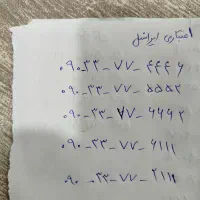 اعتباری ایرانسل
۰۹۰-۳۳-۷۷-۴۴۴۶
۰۹۰-۳۳-۷۷-۵۵۵۲
۰۹۰-۳۳-۷۷-۶۶۶۲
۰۹۰-۳۳-۷۷-۶۱۱۱
۰۹۰-۳۳-۷۷-۲۱۱۱